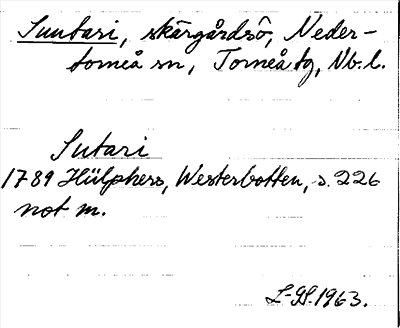 Suutari, skärgårdsö, Neder-
torneå sn, Torneå tg, Nb. l.
Sutari
1789 Hülphers, Westerbotten, s. 226
not m.
1963.